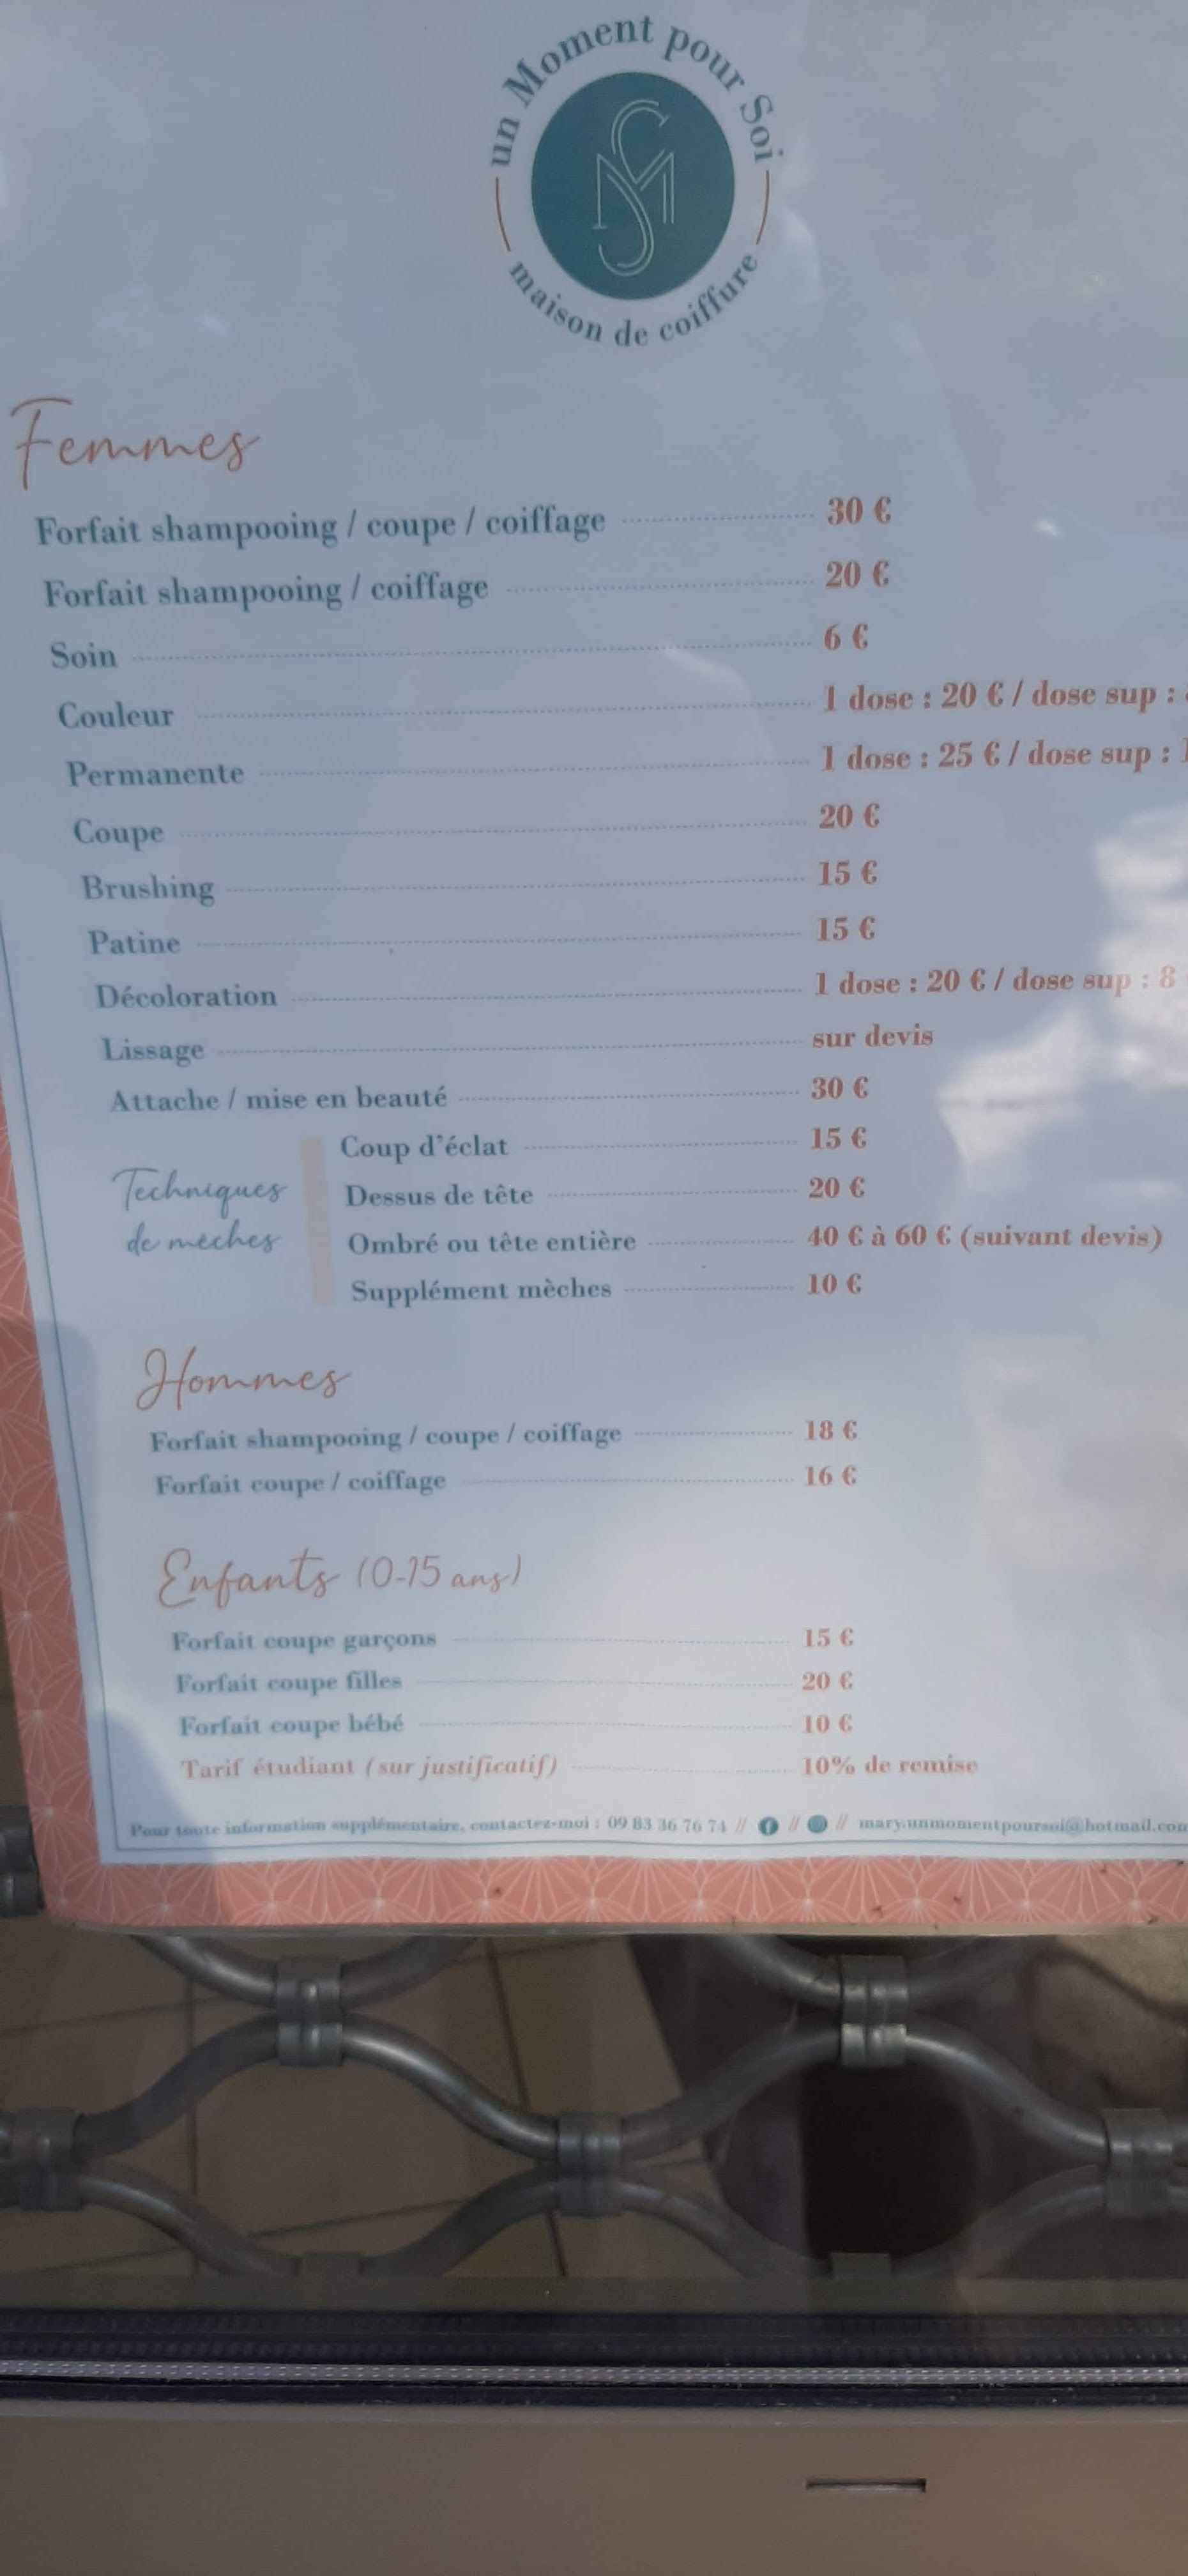 un Moment pour Soi
SM
maison de coiffure
Femmes
Forfait shampooing / coupe / coiffage 30 €
Forfait shampooing / coiffage 20 €
Soin 6 €
Couleur 1 dose : 20 € / dose sup :
Permanente 1 dose : 25 € / dose sup :
Coupe 20 €
Brushing 15 €
Patine 15 €
Décoloration 1 dose : 20 € / dose sup : 8
Lissage sur devis
Attache / mise en beauté 30 €
Techniques de mèches
Coup d'éclat 15 €
Dessus de tête 20 €
Ombré ou tête entière 40 € à 60 € (suivant devis)
Supplément mèches 10 €
Hommes
Forfait shampooing / coupe / coiffage 18 €
Forfait coupe / coiffage 16 €
Enfants (0-15 ans)
Forfait coupe garçons 15 €
Forfait coupe filles 20 €
Forfait coupe bébé 10 €
Tarif étudiant (sur justificatif) 10% de remise
Pour toute information supplémentaire, contactez-moi : 09 83 36 76 74 // // // mary.unmomentpoursoi@hotmail.com